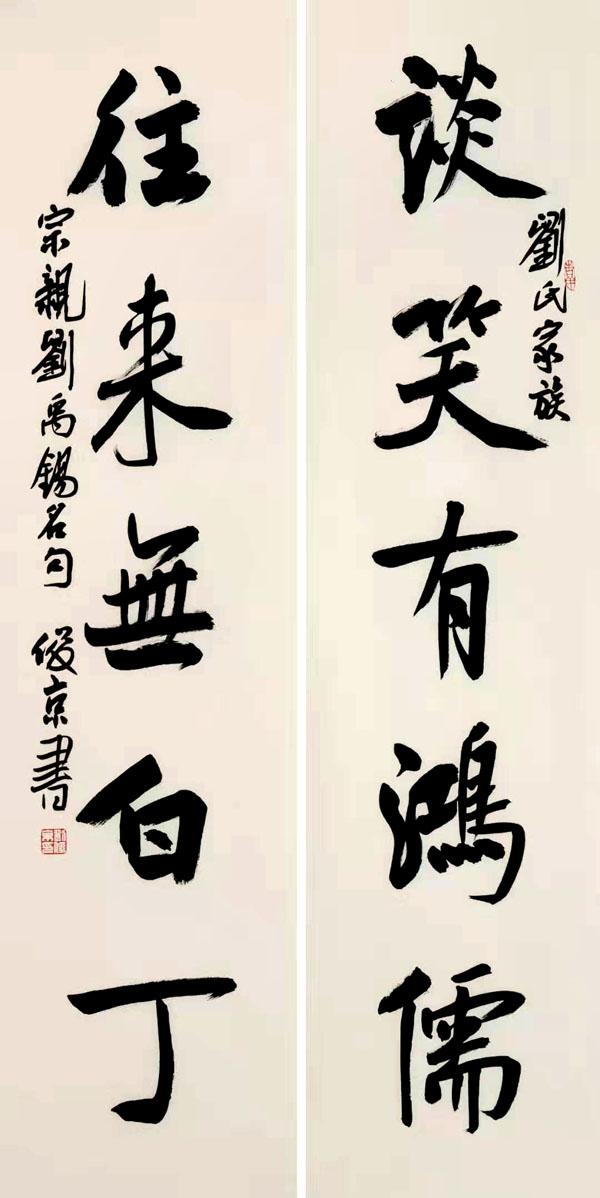 劉氏家族
談笑有鴻儒
往来無白丁
宗親劉禹錫名句 俊京書